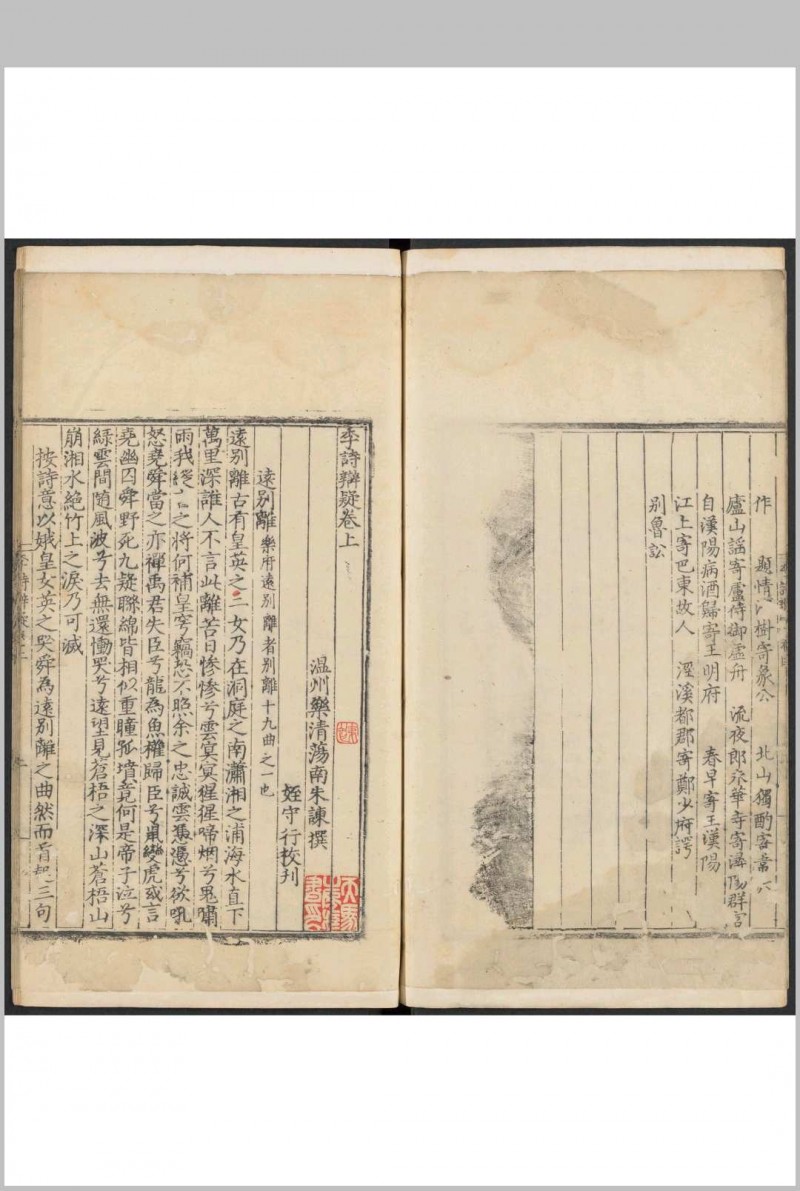 作 題情 樹寄象公 北山獨酌寄韋六
廬山謡寄盧侍御虛舟 流夜郎永華寺寄潯陽群官
自漢陽病酒歸寄王明府 春早寄王漢陽
江上寄巴東故人 涇溪都郡寄鄭少府諤
別魯訟
李詩辨疑卷上
温州樂清蕩南朱諫撰
姪守行校刊
遠別離 樂府遠別離者別離十九曲之一也
遠別離古有皇英之二女乃在洞庭之南瀟湘之浦海水直下
萬里深誰人不言此離苦日慘慘兮雲冥冥猩猩啼烟兮鬼嘯
雨我縱言之將何補皇穹竊恐不照余之忠誠雲憑憑兮欲吼
怒堯舜當之亦禪禹君失臣兮龍為魚權歸臣兮鼠變虎或言
堯幽囚舜野死九疑聯綿皆相似重瞳孤墳竟何是帝子泣兮
綠雲間隨風波兮去無還慟哭兮遠望見蒼梧之深山蒼梧山
崩湘水絕竹上之淚乃可滅
按詩意以娥皇女英之哭舜為遠別離之曲然而首起三句